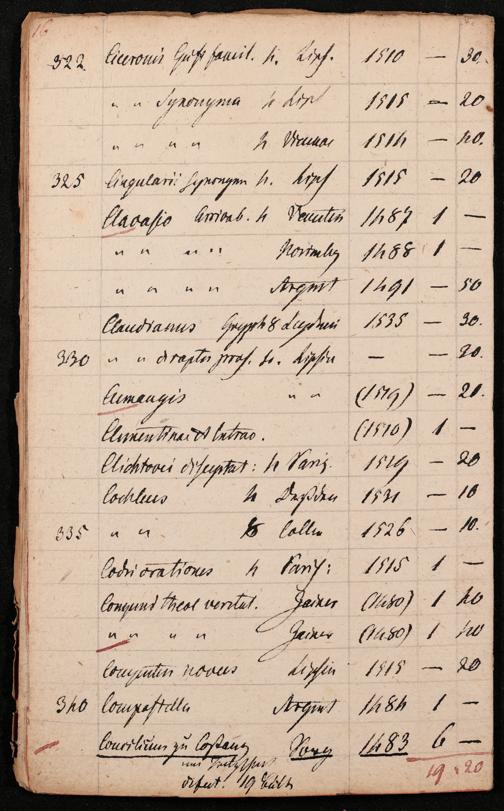 16
322 Ciceronis Epist famil. 4. Lips. 1510 — 30.
" " Synonyma 4 Lips 1515 — 20
" " " " 4 Viennae 1514 — 40.
325 Cingularii Synonym 4. Lips 1515 — 20
Clavasio Arrivab. 4 Venetiis 1487 1 —
" " " " Norimbg 1488 1 —
" " " " Argent 1491 — 50
Claudianus Gryph 8 Lugduni 1535 — 30.
330 " " de raptu pros. 4. Lipsiae — — 20.
Clemangis " " (1519) — 20.
(1510) 1 —
Clichtovei disputat: 4 Paris. 1519 — 20
Cochleus 4 Dresden 1531 — 10
335 " " 8 Colln 1526 — 10.
Codri orationes 4 Paris: 1515 1 —
Compend theol veritat. Zainer (1480) 1 40
" " " " Zainer (1480) 1 40
Computus novus Lipsiae 1515 — 20
340 Compostella Argent 1484 1 —
Concilium zu Costanz Sorg 1483 6 —
defect. 19
19 · 20